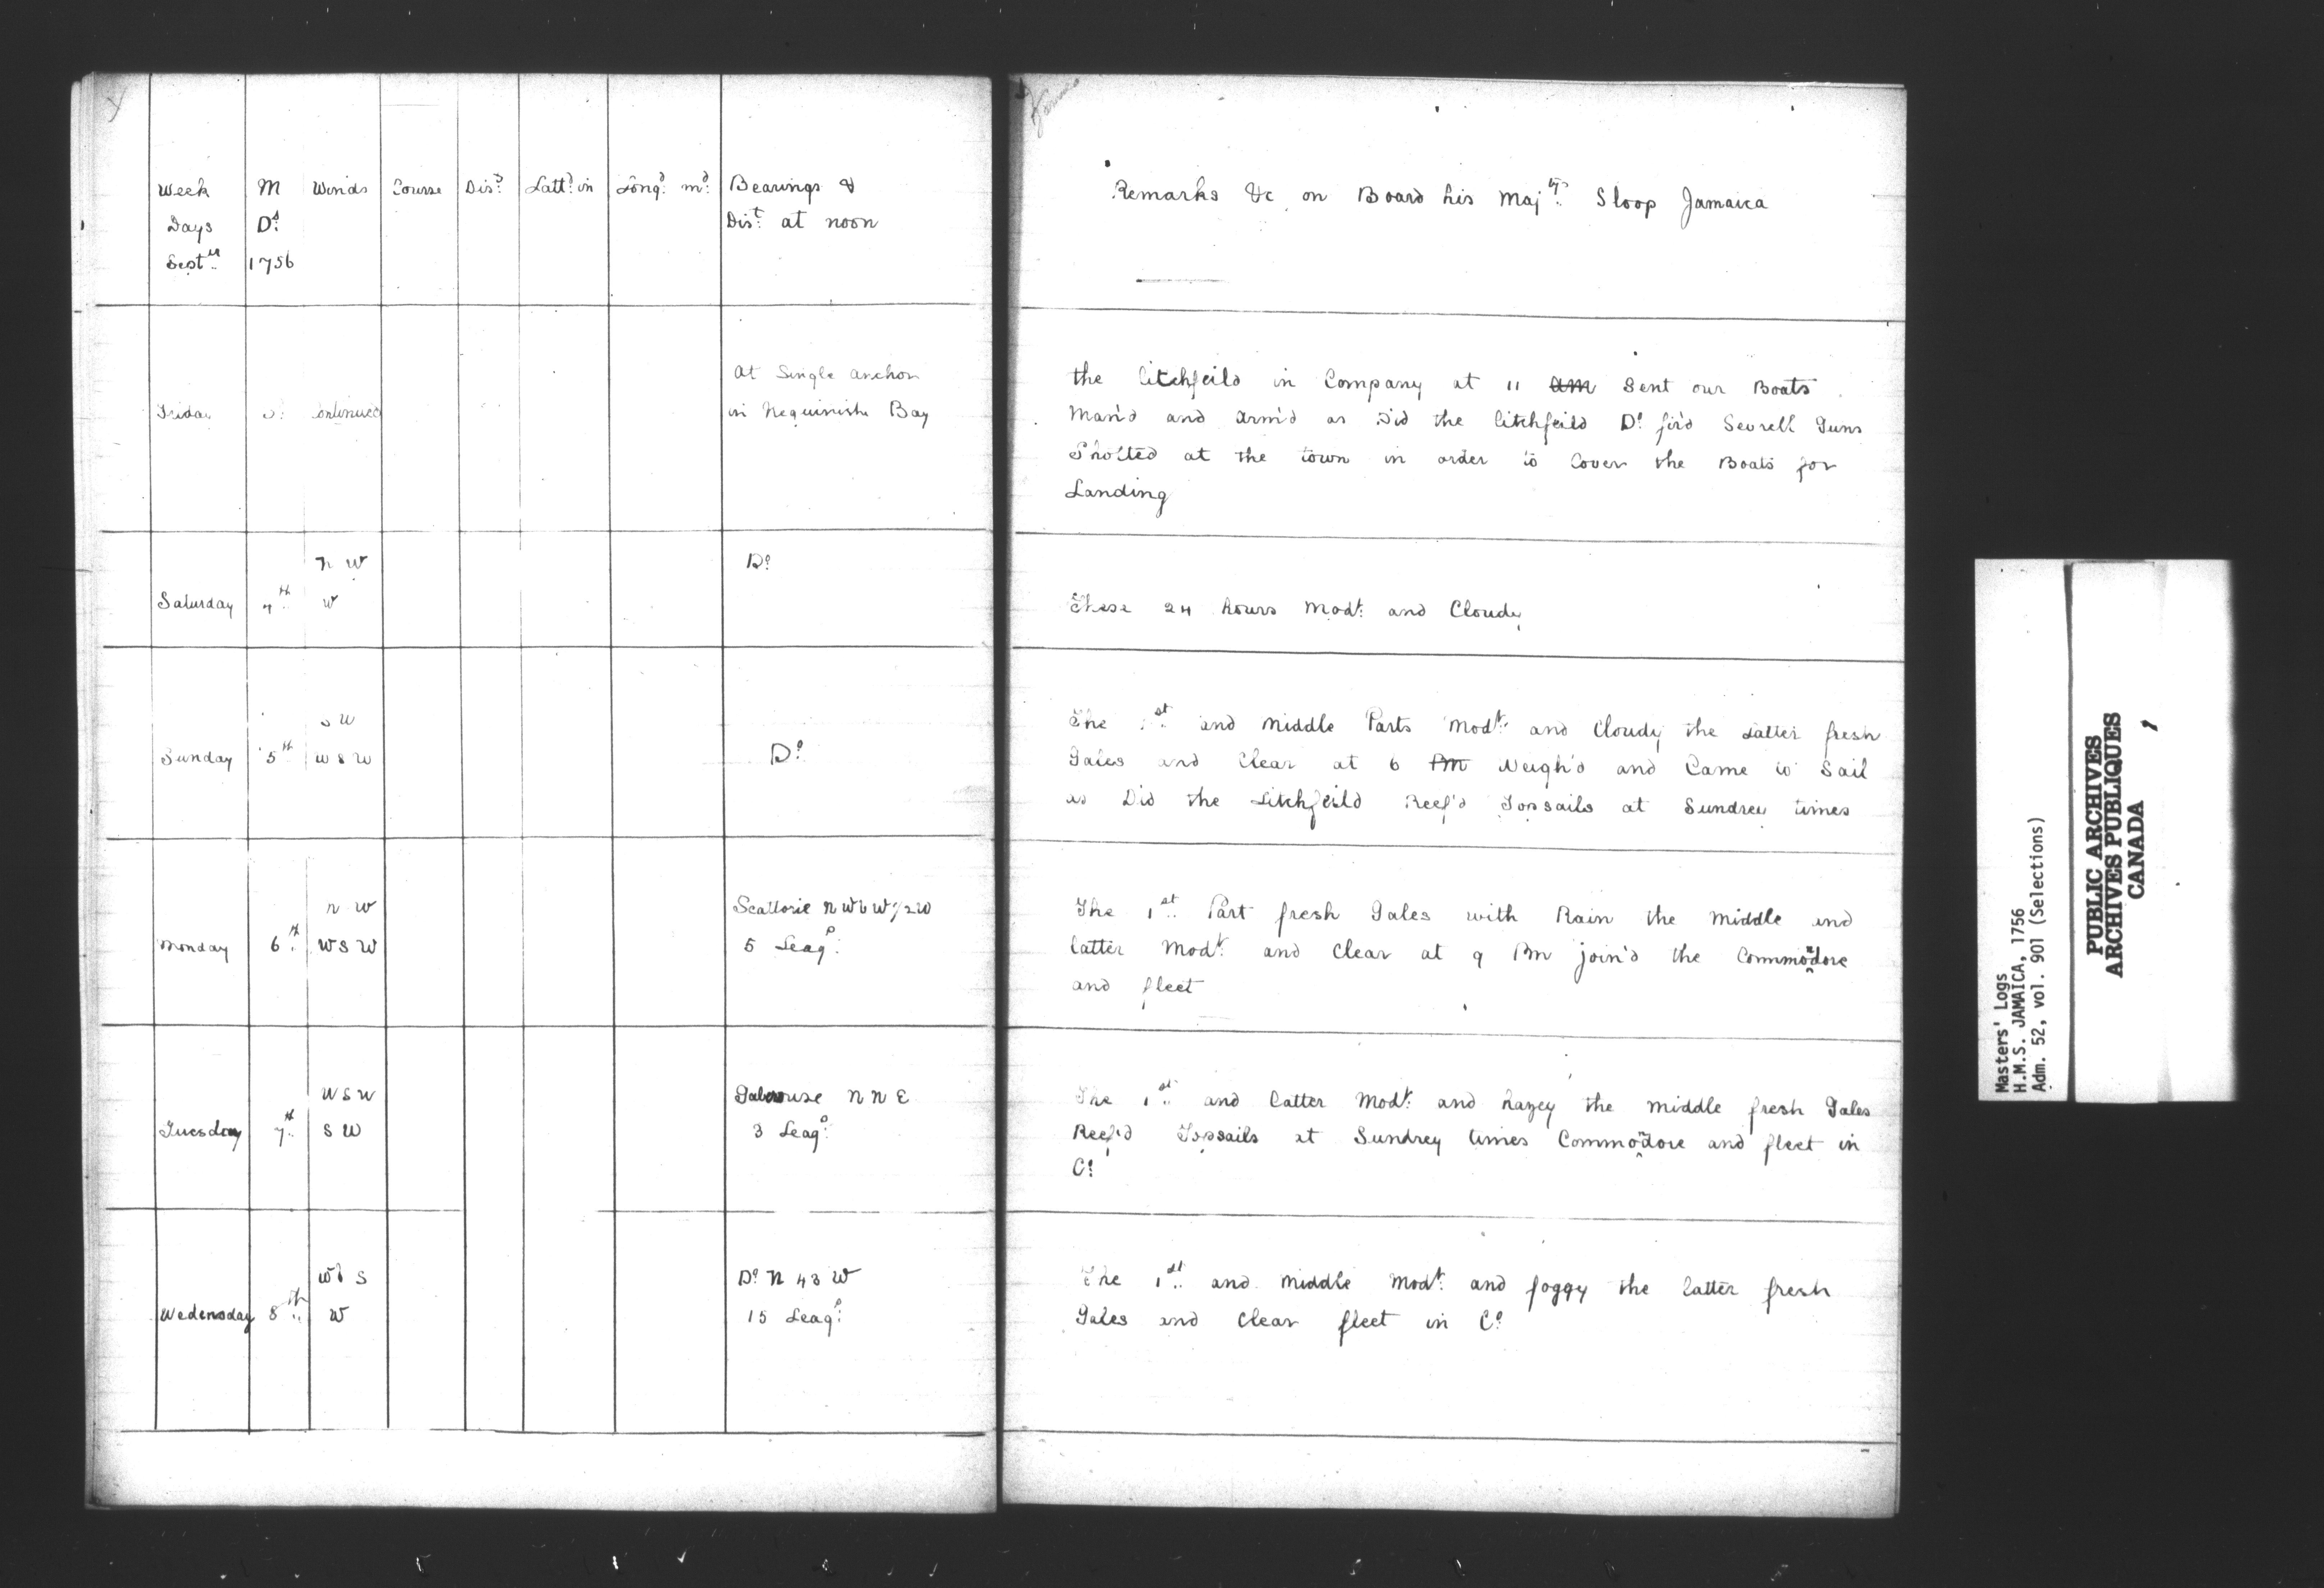 Week M Winds Course Dis.ᵗ Latt.ᵈ in Long.ᵈ m.ᵈ Bearings &
Days D.ˢ Dis.ᵗ at noon
Sept.ᵉʳ 1756
At Single anchor
Friday 3. Continued in Nequinishe Bay
N W D.º
Saturday 4.ᵗʰ W
S W
Sunday 5.ᵗʰ W S W D.º
N W Scattorie N W b W 1/2 W
Monday 6.ᵗʰ W S W 5 Leag.ˢ
W S W Gaberouse N N E
Tuesday 7.ᵗʰ S W 3 Leag.ˢ
W b S D.º N 43 W
Wedensday 8.ᵗʰ W 15 Leag.ˢ
Jamaica
Remarks &c on Board his Maj.ᵗʸˢ Sloop Jamaica
the Litchfeild in Company at 11 am Sent our Boats
Man'd and Arm'd as Did the Litchfeild D.º fir'd Sevrell Guns
Shotted at the town in order to Cover the Boats for
Landing
These 24 hours Mod.ᵗ and Cloudy
The 1.ˢᵗ and Middle Parts Mod.ᵗ and Cloudy the Latter fresh
Gales and Clear at 6 PM Weigh'd and Came to Sail
as Did the Litchfeild Reef'd Topsails at Sundrey times
The 1.ˢᵗ Part fresh Gales with Rain the Middle and
latter Mod.ᵗ and Clear at 9 Pm join'd the Commondore
and fleet
The 1.ˢᵗ and Latter Mod.ᵗ and hazey the Middle fresh Gales
Reef'd Topsails at Sundrey times Commondore and fleet in
C.º
The 1.ˢᵗ and Middle Mod.ᵗ and foggy the latter fresh
Gales and Clear fleet in C.º
Masters' Logs
H.M.S. JAMAICA, 1756
Adm. 52, vol. 901 (Selections)
PUBLIC ARCHIVES
ARCHIVES PUBLIQUES
CANADA